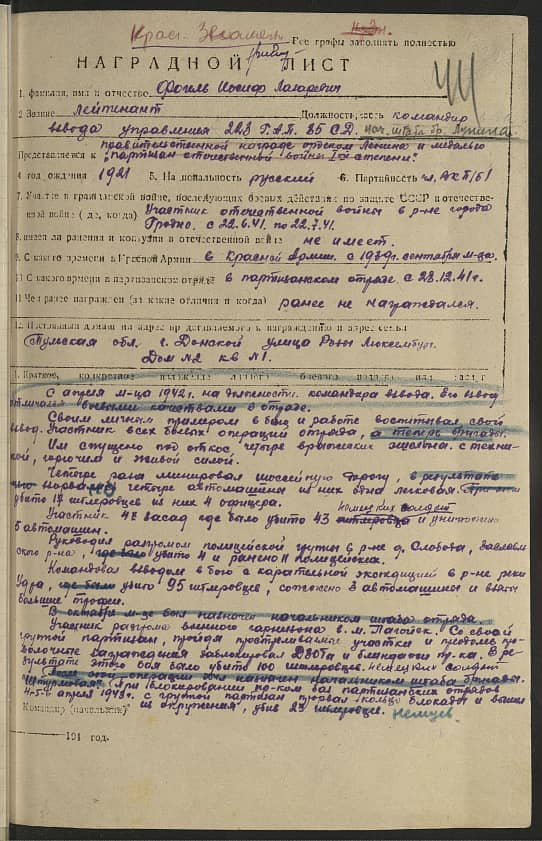 Крас. Знамен
Все графы заполнять полностью
НАГРАДНОЙ ЛИСТ
44
1. фамилия, имя и отчество Фогель Иосиф Лазаревич
2 Звание Лейтинант Должность, часть командир
взвода управления 223 Г.А.П. 85 С.Д. нач. штаба бр.
правительственной награде орденом Ленина и медалью
Представляется к "партизан отечественной войны I й степени"
4 год ождения 1921 5. На иональность русский 6. Партийность
7. Участие в гражданской войне, последующих боевых действиях по защите СССР и отечестве-
ской войне (где, когда) Участник отечественной войны в р-не города
Гродно. с 22.6.41. по 22.7.41.
8. имеет ли ранения и контузии в отечественной войне не имеет.
9. С какого времени в Красной Армии в Красной Армии. с 1939г. сентября м-ца.
С какого времени в партизанском отряде в партизанском отряде с 28.12.41г.
11 Чем ранее награжден (за какие отличия и когда) ранее не награждался.
12. Постоянный домашний адрес представляемого к награждению и адрес семьи
Тульская обл. г. Донской улица Розы Люксембург.
Дом №2 кв №1.
Краткое, конкретное изложение личного боевого подвига или заслуг
С апреля м-ца 1942г. на должности командира взвода. Его взвод
отличался боевыми качествами в отряде.
Своим личным примером в бою и работе воспитывал свой
взвод. Участник всех боевых операций отряда, а теперь бригады.
Им спущено под откос, четыре вражеских эшелона. с техни-
кой, горючим и живой силой.
Четыре раза минировал шоссейную дорогу, в результате
взорваны четыре автомашины из них одна легковая.
убито 17 гитлеровцев из них 4 офицера.
Участник 42 засад где было убито 43 немецких солдат гитлеровца и уничтожено
5 автомашин.
Руководил разгромом полицейской группы в р-не д. Слобода,
ского р-на, где было убито 4 и ранено 11 полицейских.
Командовал взводом в бою с карательной экспедицией в р-не реки
где было убито 95 гитлеровцев, сожжено 3 автомашины и взяты
большие трофеи.
В октябре м-це был назначен начальником штаба отряда.
Участник разгрома военного гарнизона в м. Логойск. Со своей
группой партизан, пройдя простреливаемые участки и проволочные
заграждения заблокировал ДЗОТы и блиндажи пр-ка. В ре-
зультате этого боя было убито 100 гитлеровцев. немецких солдат
После этой операции был назначен начальником штаба бригады
"Штурмовая". При блокировании пр-ком бал партизанских отрядов
4-5 апреля 1943г. с группой партизан прорвал кольцо блокады и вышел
из окружения, убив 23 гитлеровцев. немцев.
Командир (начальник)
194 год.